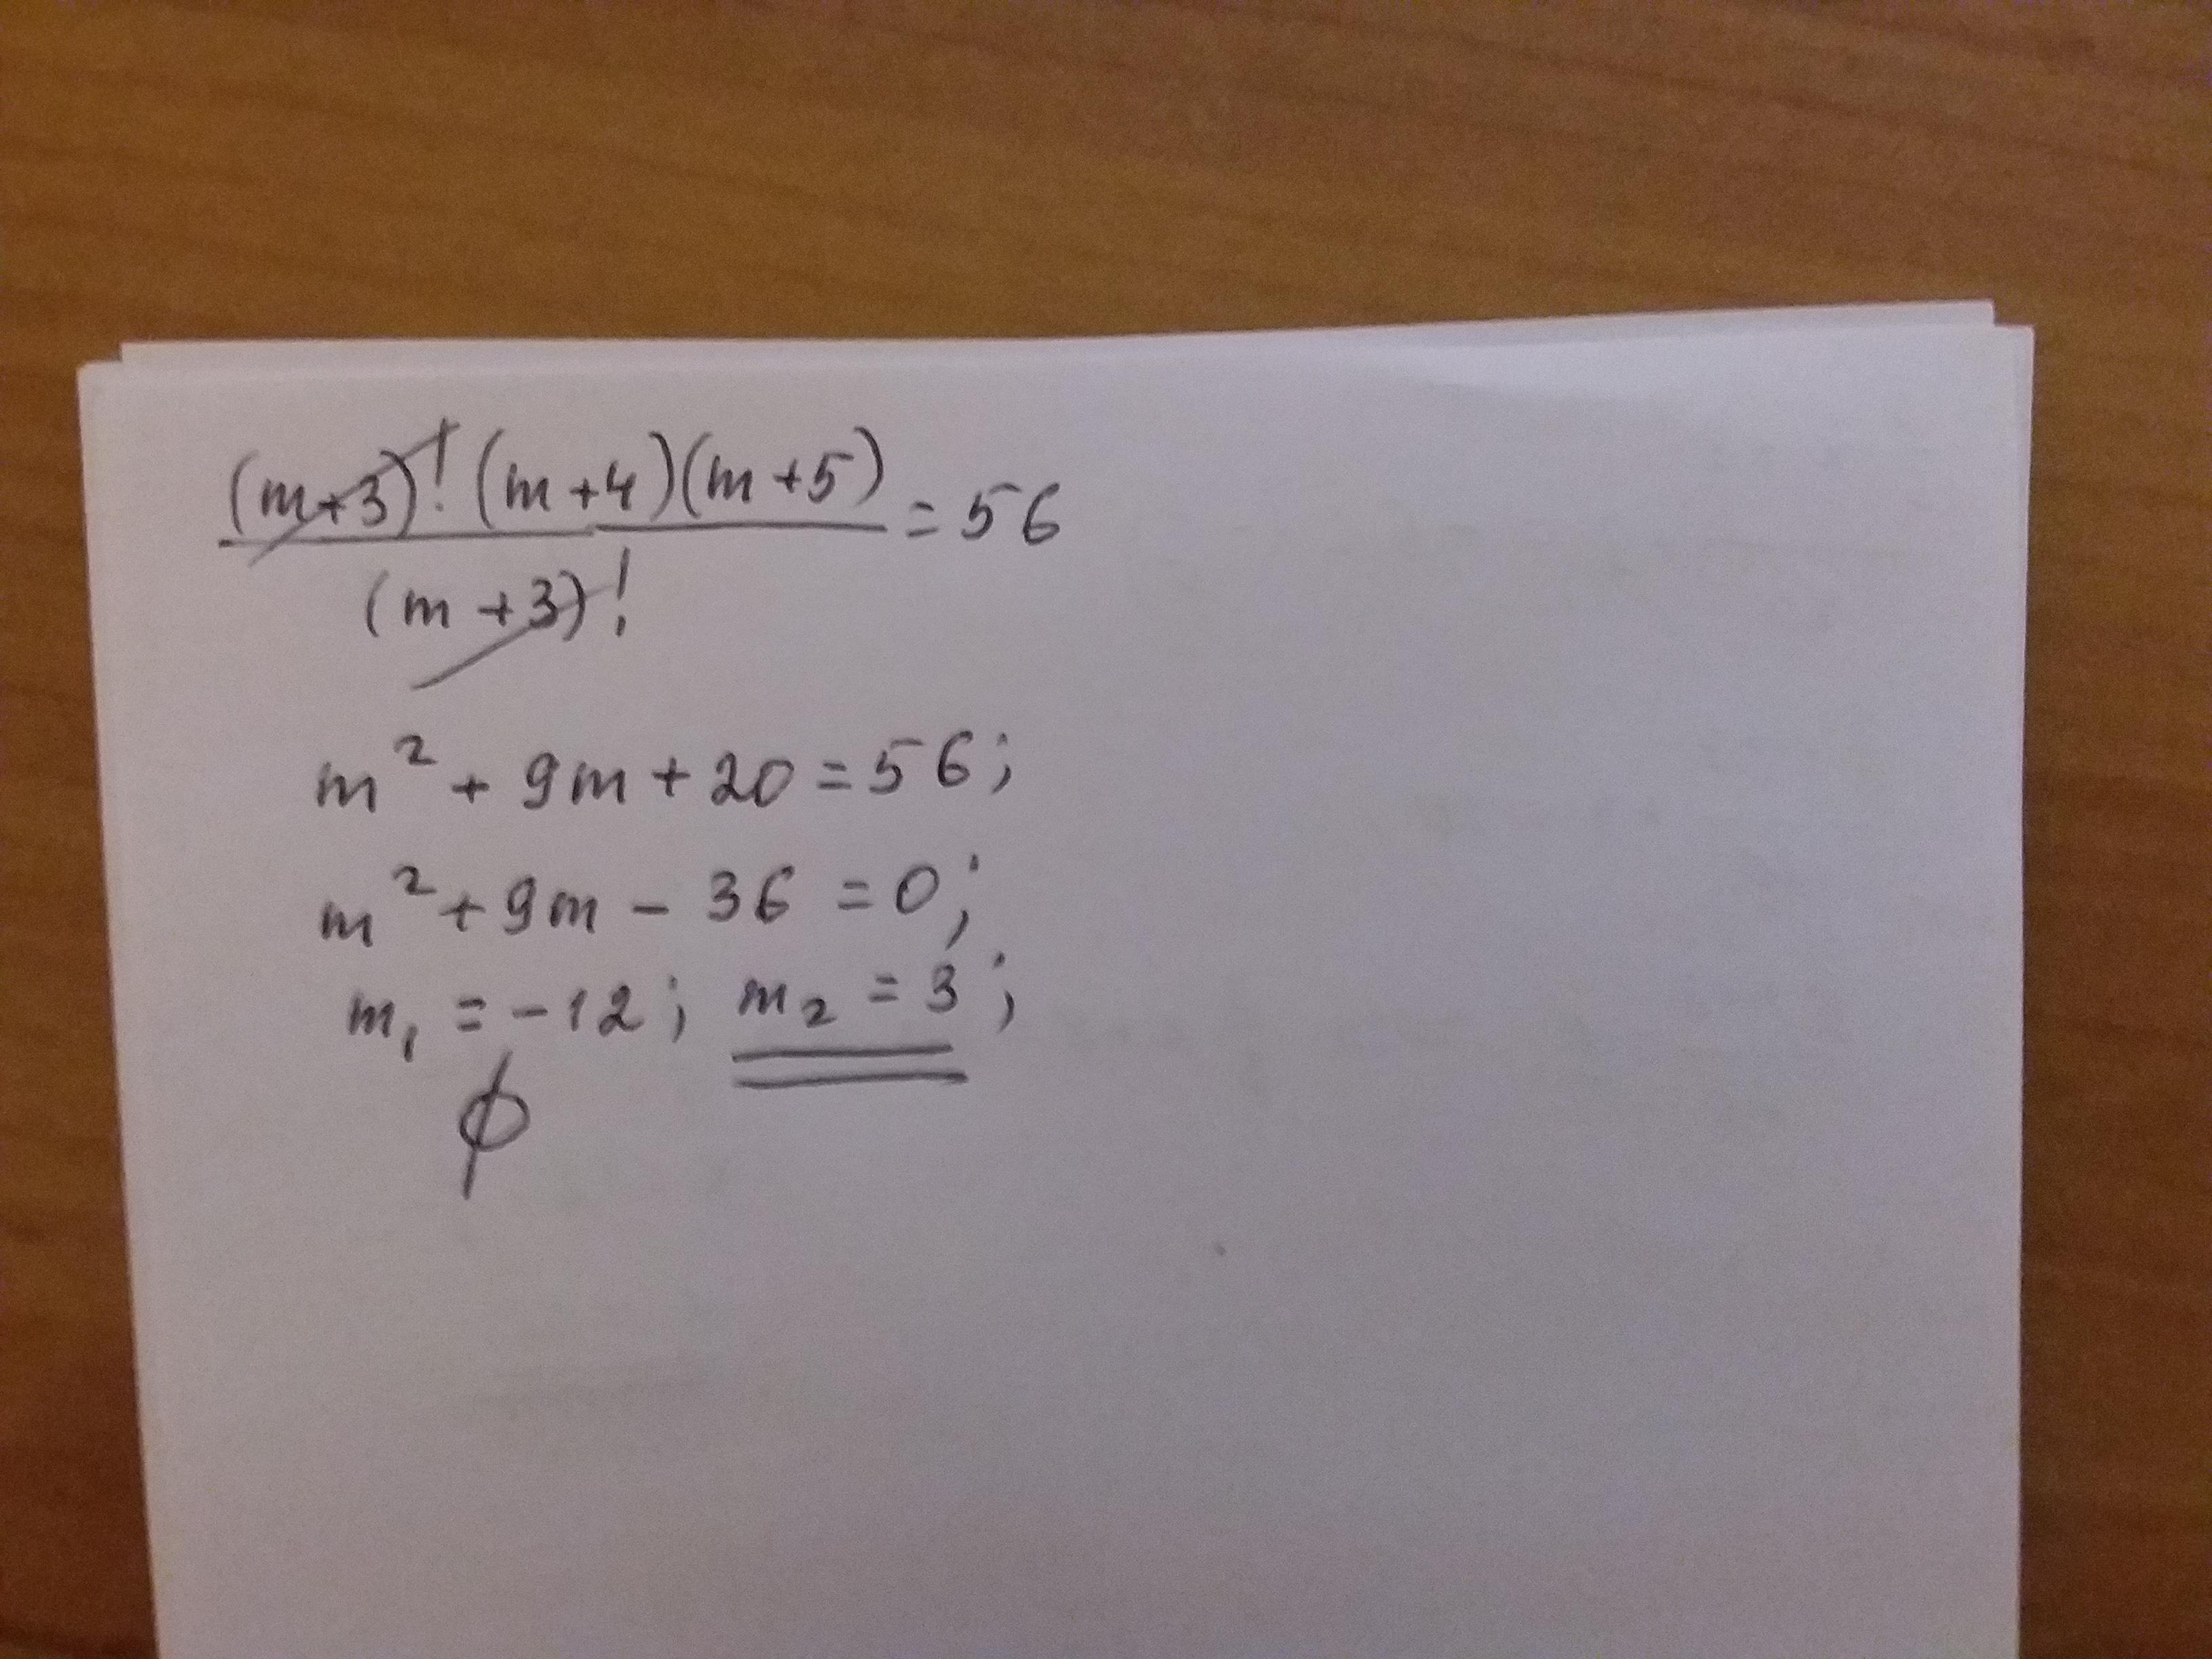 (m+3)!(m+4)(m+5) = 56
(m+3)!
m² + 9m + 20 = 56;
m² + 9m - 36 = 0;
m₁ = -12; m₂ = 3;
∅